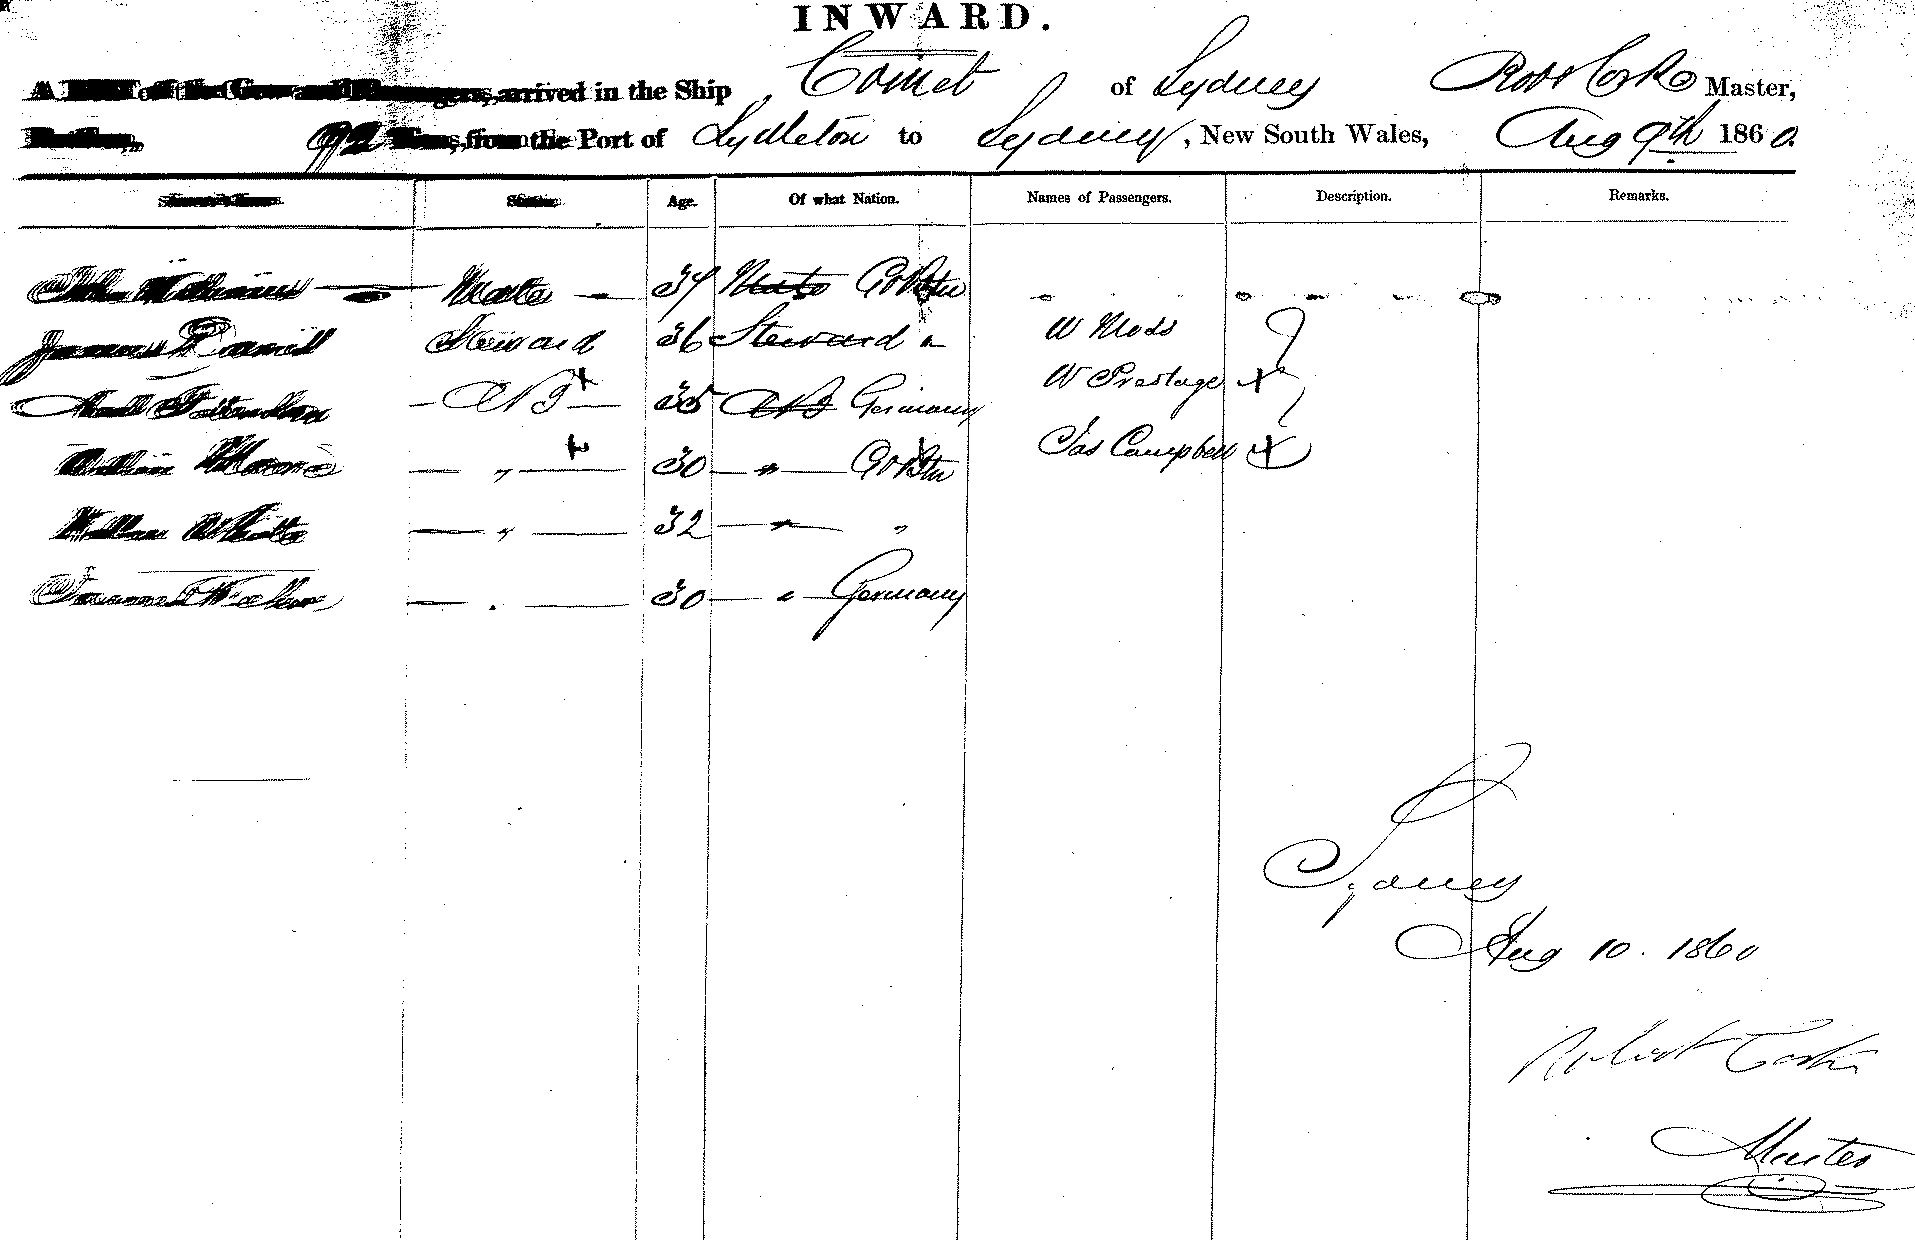 INWARD.
A LIST of the Crew and Passengers, arrived in the Ship Comet of Sydney Robt Cork Master,
92 Tons, from the Port of Lyttleton to Sydney, New South Wales, Aug 9th 1860.
Station. Age. Of what Nation. Names of Passengers. Description. Remarks.
John Williams Mate 34 Mate Gt Btn
James Steward 36 Steward " W Moss
AB 35 AB Germany W Prestage
William 30 " Gt Btn Jas Campbell
William White " 32 " "
30 " Germany
Sydney
Aug 10. 1860
Robert Cork
Master